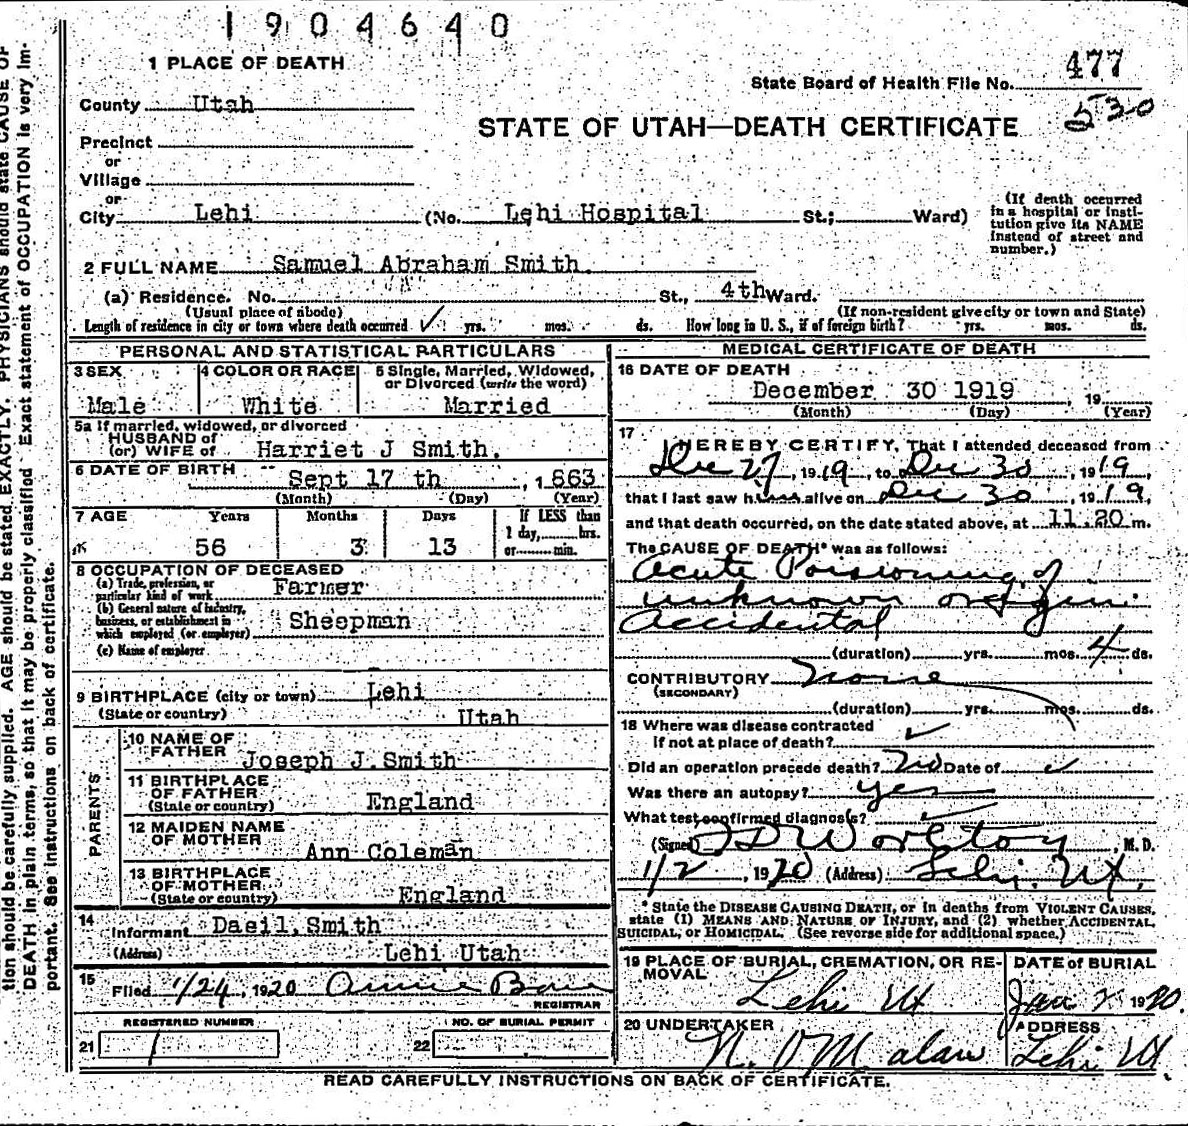 1904640
1 PLACE OF DEATH
State Board of Health File No. 477
530
County Utah
STATE OF UTAH—DEATH CERTIFICATE
Precinct
or
Village
or
City Lehi (No. Lehi Hospital St.; Ward)
(If death occurred in a hospital or insti-
tution give its NAME
instead of street and
number.)
2 FULL NAME Samuel Abraham Smith.
(a) Residence. No. St., 4th Ward.
(Usual place of abode) (If non-resident give city or town and State)
Length of residence in city or town where death occurred ✓ yrs. mos. ds. How long in U. S., if of foreign birth? yrs. mos. ds.
PERSONAL AND STATISTICAL PARTICULARS
3 SEX
Male
4 COLOR OR RACE
White
5 Single, Married, Widowed,
or Divorced (write the word)
Married
5a If married, widowed, or divorced
HUSBAND of
(or) WIFE of Harriet J Smith.
6 DATE OF BIRTH
Sept 17 th, 1863
(Month) (Day) (Year)
7 AGE Years Months Days If LESS than
1 day, hrs.
or min.
56 3 13
8 OCCUPATION OF DECEASED
(a) Trade, profession, or
particular kind of work Farmer
(b) General nature of industry,
business, or establishment in
which employed (or employer) Sheepman
(c) Name of employer
9 BIRTHPLACE (city or town) Lehi
(State or country) Utah
PARENTS
10 NAME OF
FATHER Joseph J. Smith
11 BIRTHPLACE
OF FATHER
(State or country) England
12 MAIDEN NAME
OF MOTHER Ann Coleman
13 BIRTHPLACE
OF MOTHER
(State or country) England
14
Informant Smith
(Address) Lehi Utah
15
Filed 1/24, 1920 Annie
REGISTRAR
REGISTERED NUMBER
21 1
NO. OF BURIAL PERMIT
22
MEDICAL CERTIFICATE OF DEATH
16 DATE OF DEATH
December 30 1919, 19
(Month) (Day) (Year)
17
I HEREBY CERTIFY, That I attended deceased from
Dec 27, 1919, to Dec 30, 1919,
that I last saw him alive on Dec 30, 1919,
and that death occurred, on the date stated above, at 11.20 m.
The CAUSE OF DEATH* was as follows:
Acute Poisioning of
unknown origin.
Accidental
(duration) yrs. mos. 4 ds.
CONTRIBUTORY None
(SECONDARY)
(duration) yrs. mos. ds.
18 Where was disease contracted
if not at place of death? ✓
Did an operation precede death? No Date of ✓
Was there an autopsy? yes
What test confirmed diagnosis?
(Signed) , M. D.
1/2, 1920 (Address) Lehi, Ut.
* State the DISEASE CAUSING DEATH, or in deaths from VIOLENT CAUSES,
state (1) MEANS AND NATURE OF INJURY, and (2) whether ACCIDENTAL,
SUICIDAL, or HOMICIDAL. (See reverse side for additional space.)
19 PLACE OF BURIAL, CREMATION, OR RE-
MOVAL
Lehi Ut
DATE of BURIAL
Jan 2 1920.
20 UNDERTAKER
N. O Malan
ADDRESS
Lehi Ut.
READ CAREFULLY INSTRUCTIONS ON BACK OF CERTIFICATE.
tion should be carefully supplied. AGE should be stated EXACTLY. PHYSICIANS should state CAUSE OF
DEATH in plain terms, so that it may be properly classified. Exact statement of OCCUPATION is very im-
portant. See instructions on back of certificate.